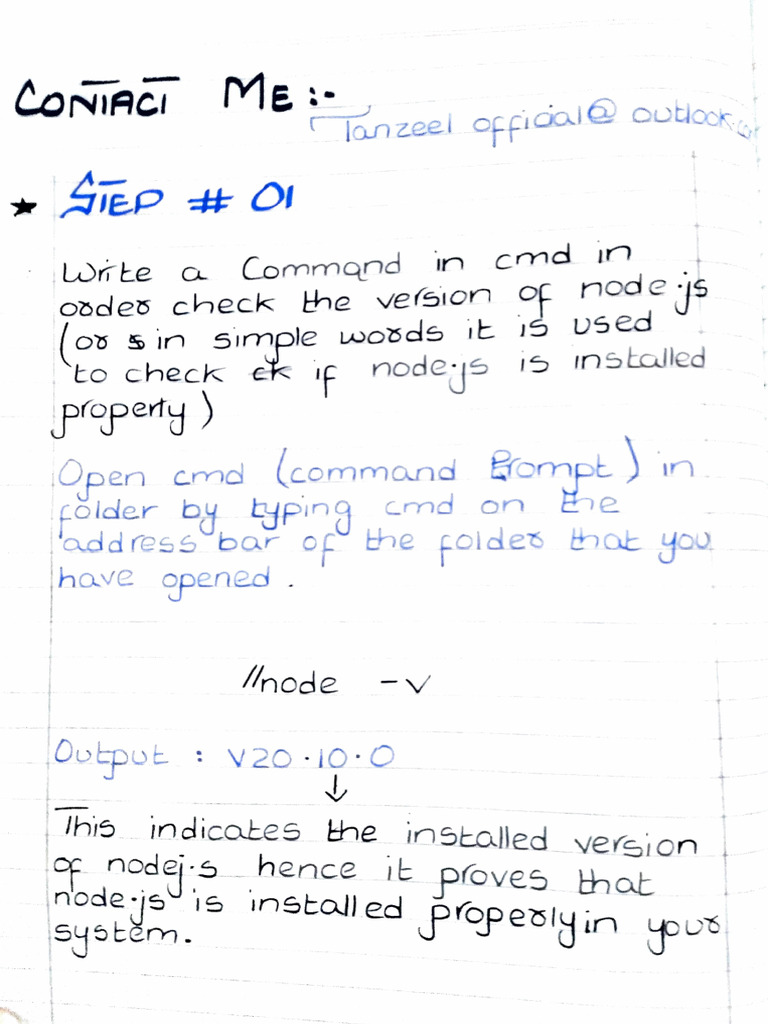 CONTACT ME :-
Tanzeel official@outlook.co
★ STEP # 01
Write a Command in cmd in
order check the version of node.js
(or in simple words it is used
to check if node.js is installed
property)
Open cmd (command Prompt) in
folder by typing cmd on the
address bar of the folder that you
have opened.
//node -v
Output : V20.10.0
↓
This indicates the installed version
of nodej.s hence it proves that
node.js is installed properly in your
system.